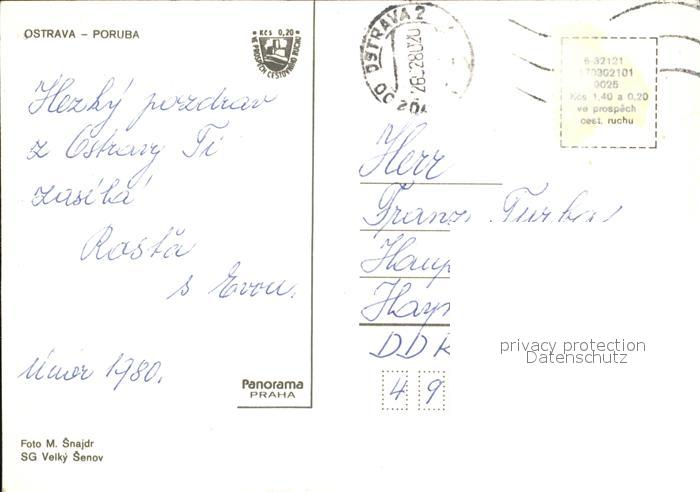 OSTRAVA – PORUBA
Kčs 0,20
VE PROSPĚCH CESTOVNÍHO RUCHU
Hezký pozdrav
z Ostravy Ti
zasílá
Rosťa
s Evou.
Únor 1980.
Panorama
PRAHA
Foto M. Šnajdr
SG Velký Šenov
OSTRAVA 2
6-32121
170302101
0025
Kčs 1,40 a 0,20
ve prospěch
cest. ruchu
Herr
Franz Turbas
Haup
Hayn
DDR
4 9
privacy protection
Datenschutz